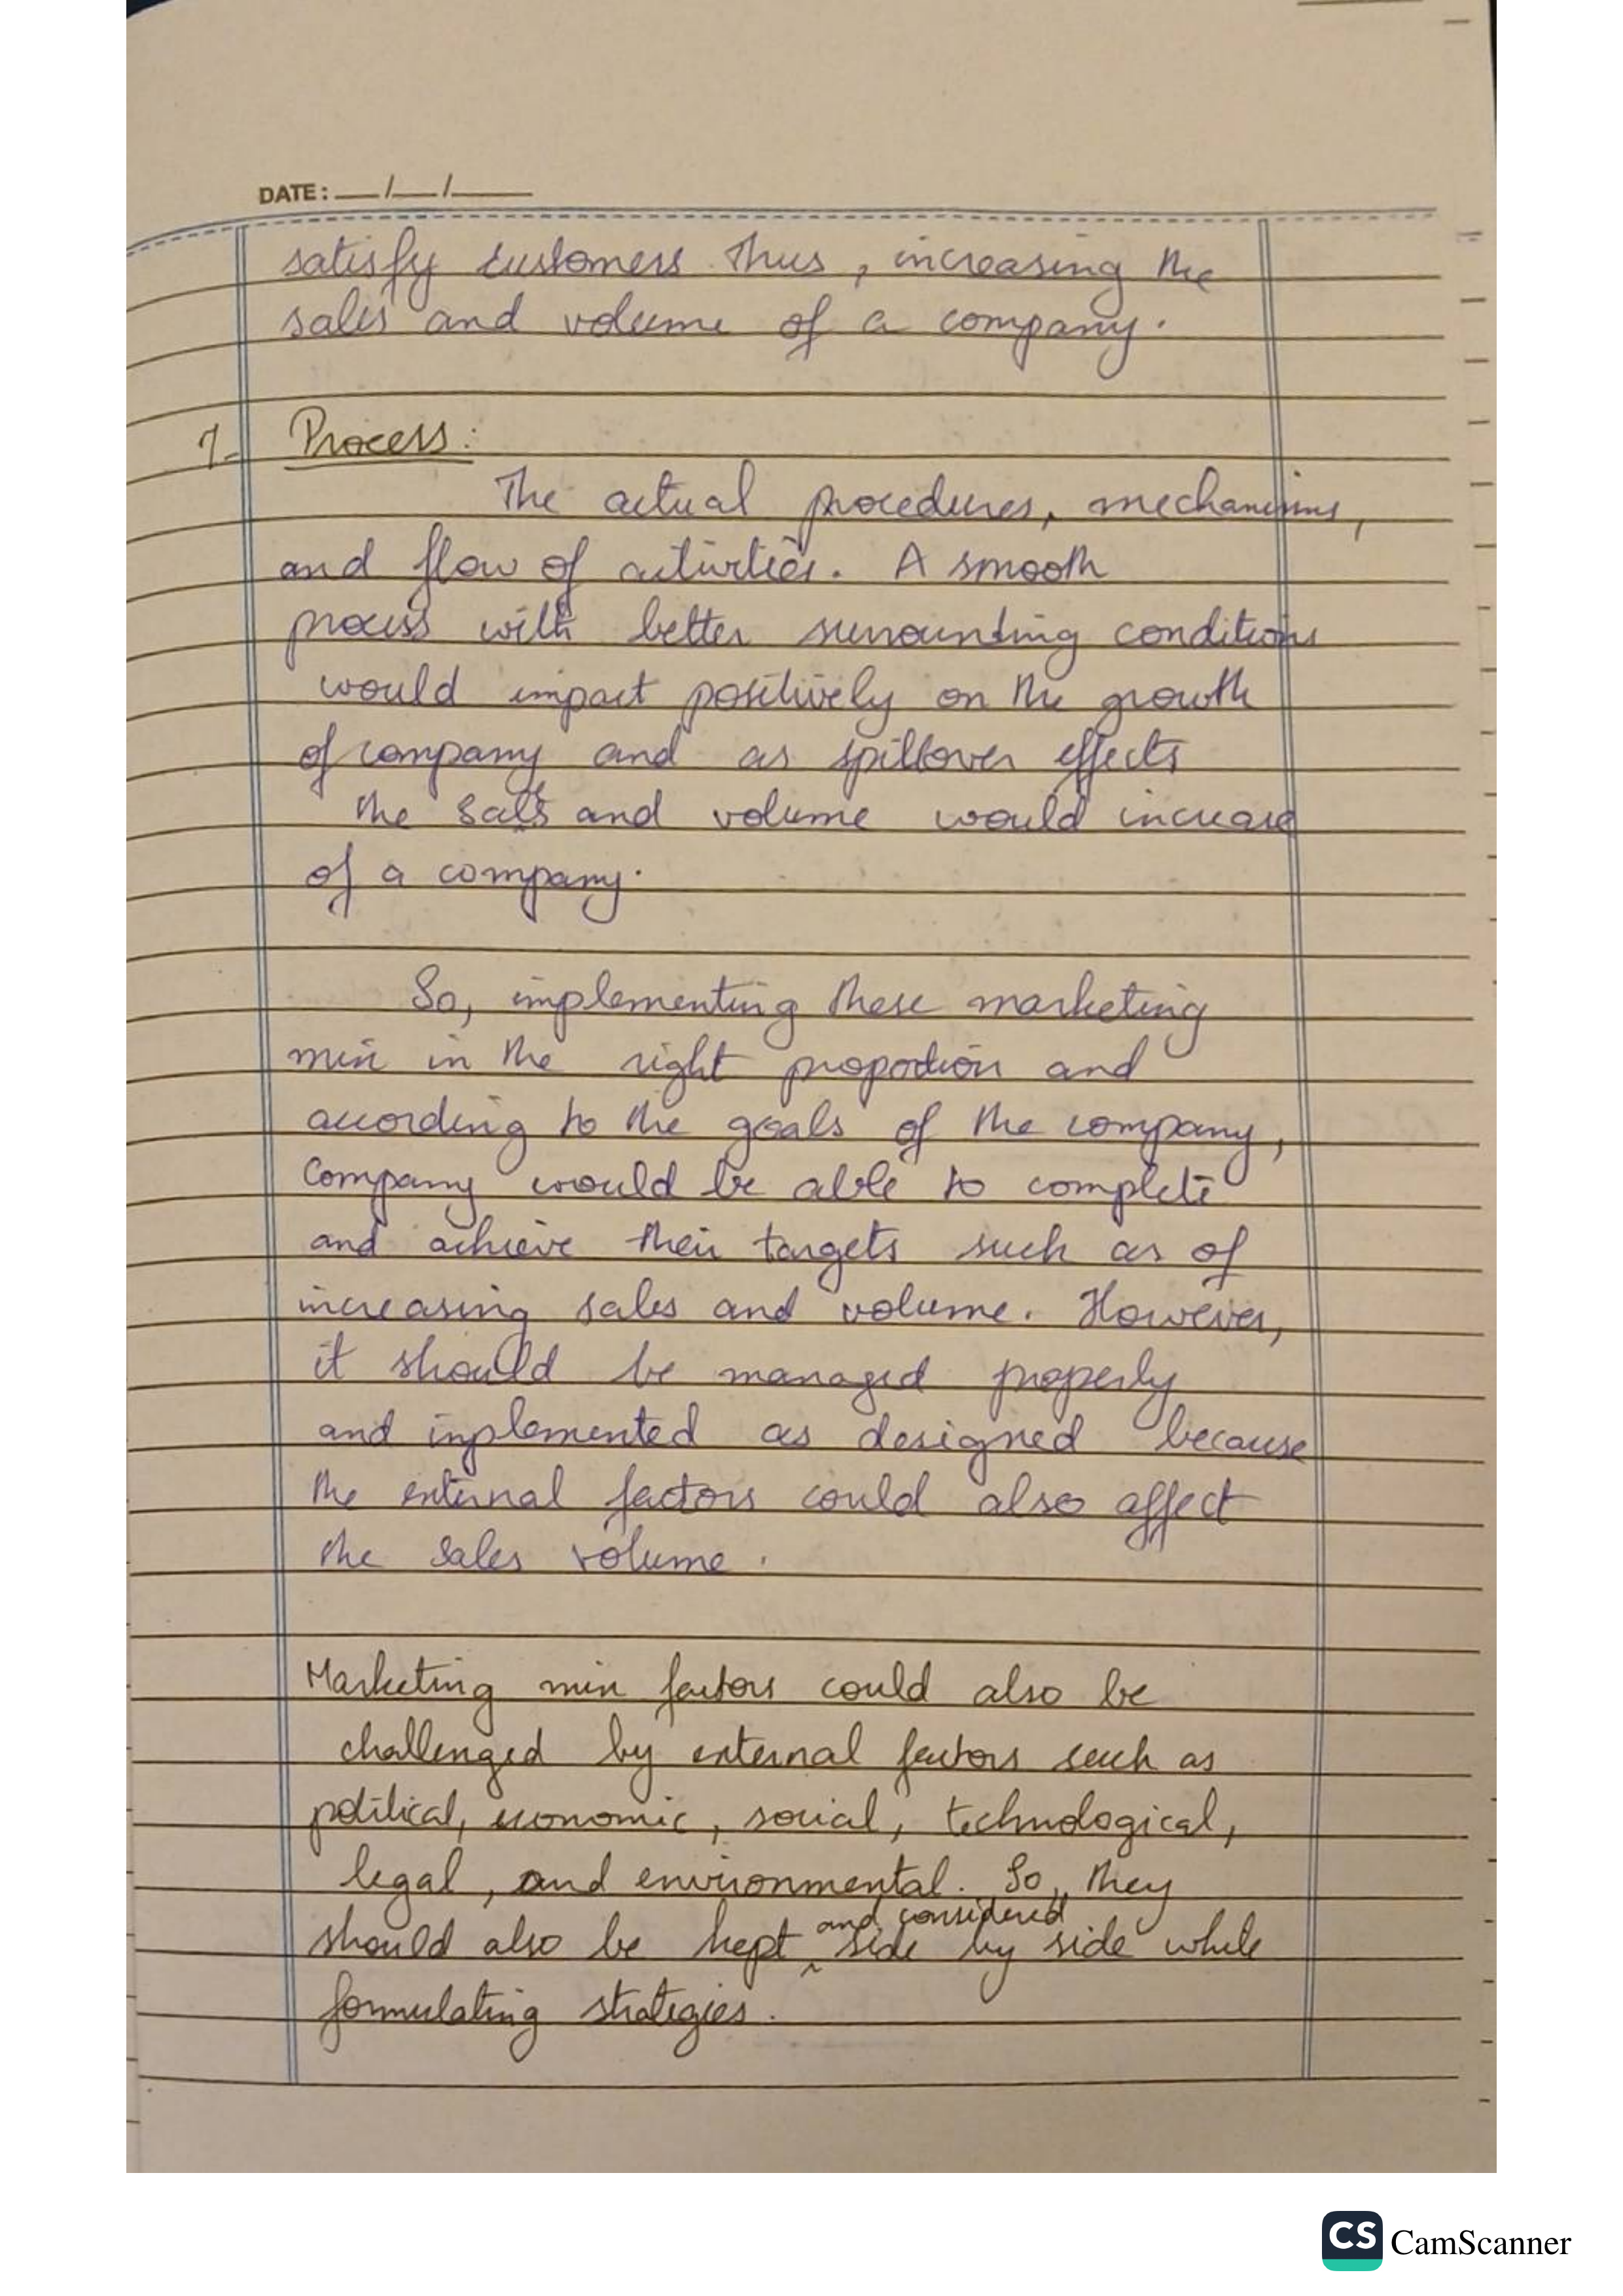 DATE: __/__/____
satisfy customers thus, increasing the
sales and volume of a company.
7- Process:
The actual procedures, mechanisms,
and flow of activities. A smooth
process with better surrounding conditions
would impact positively on the growth
of company and as spillover effects
the sales and volume would increase
of a company.
So, implementing these marketing
mix in the right proportion and
according to the goals of the company,
Company would be able to complete
and achieve their targets such as of
increasing sales and volume. However,
it should be managed properly
and implemented as designed because
the external factors could also affect
the sales volume.
Marketing mix factors could also be
challenged by external factors such as
political, economic, social, technological,
legal, and environmental. So, they
should also be kept and considered side by side while
formulating strategies.
CS CamScanner